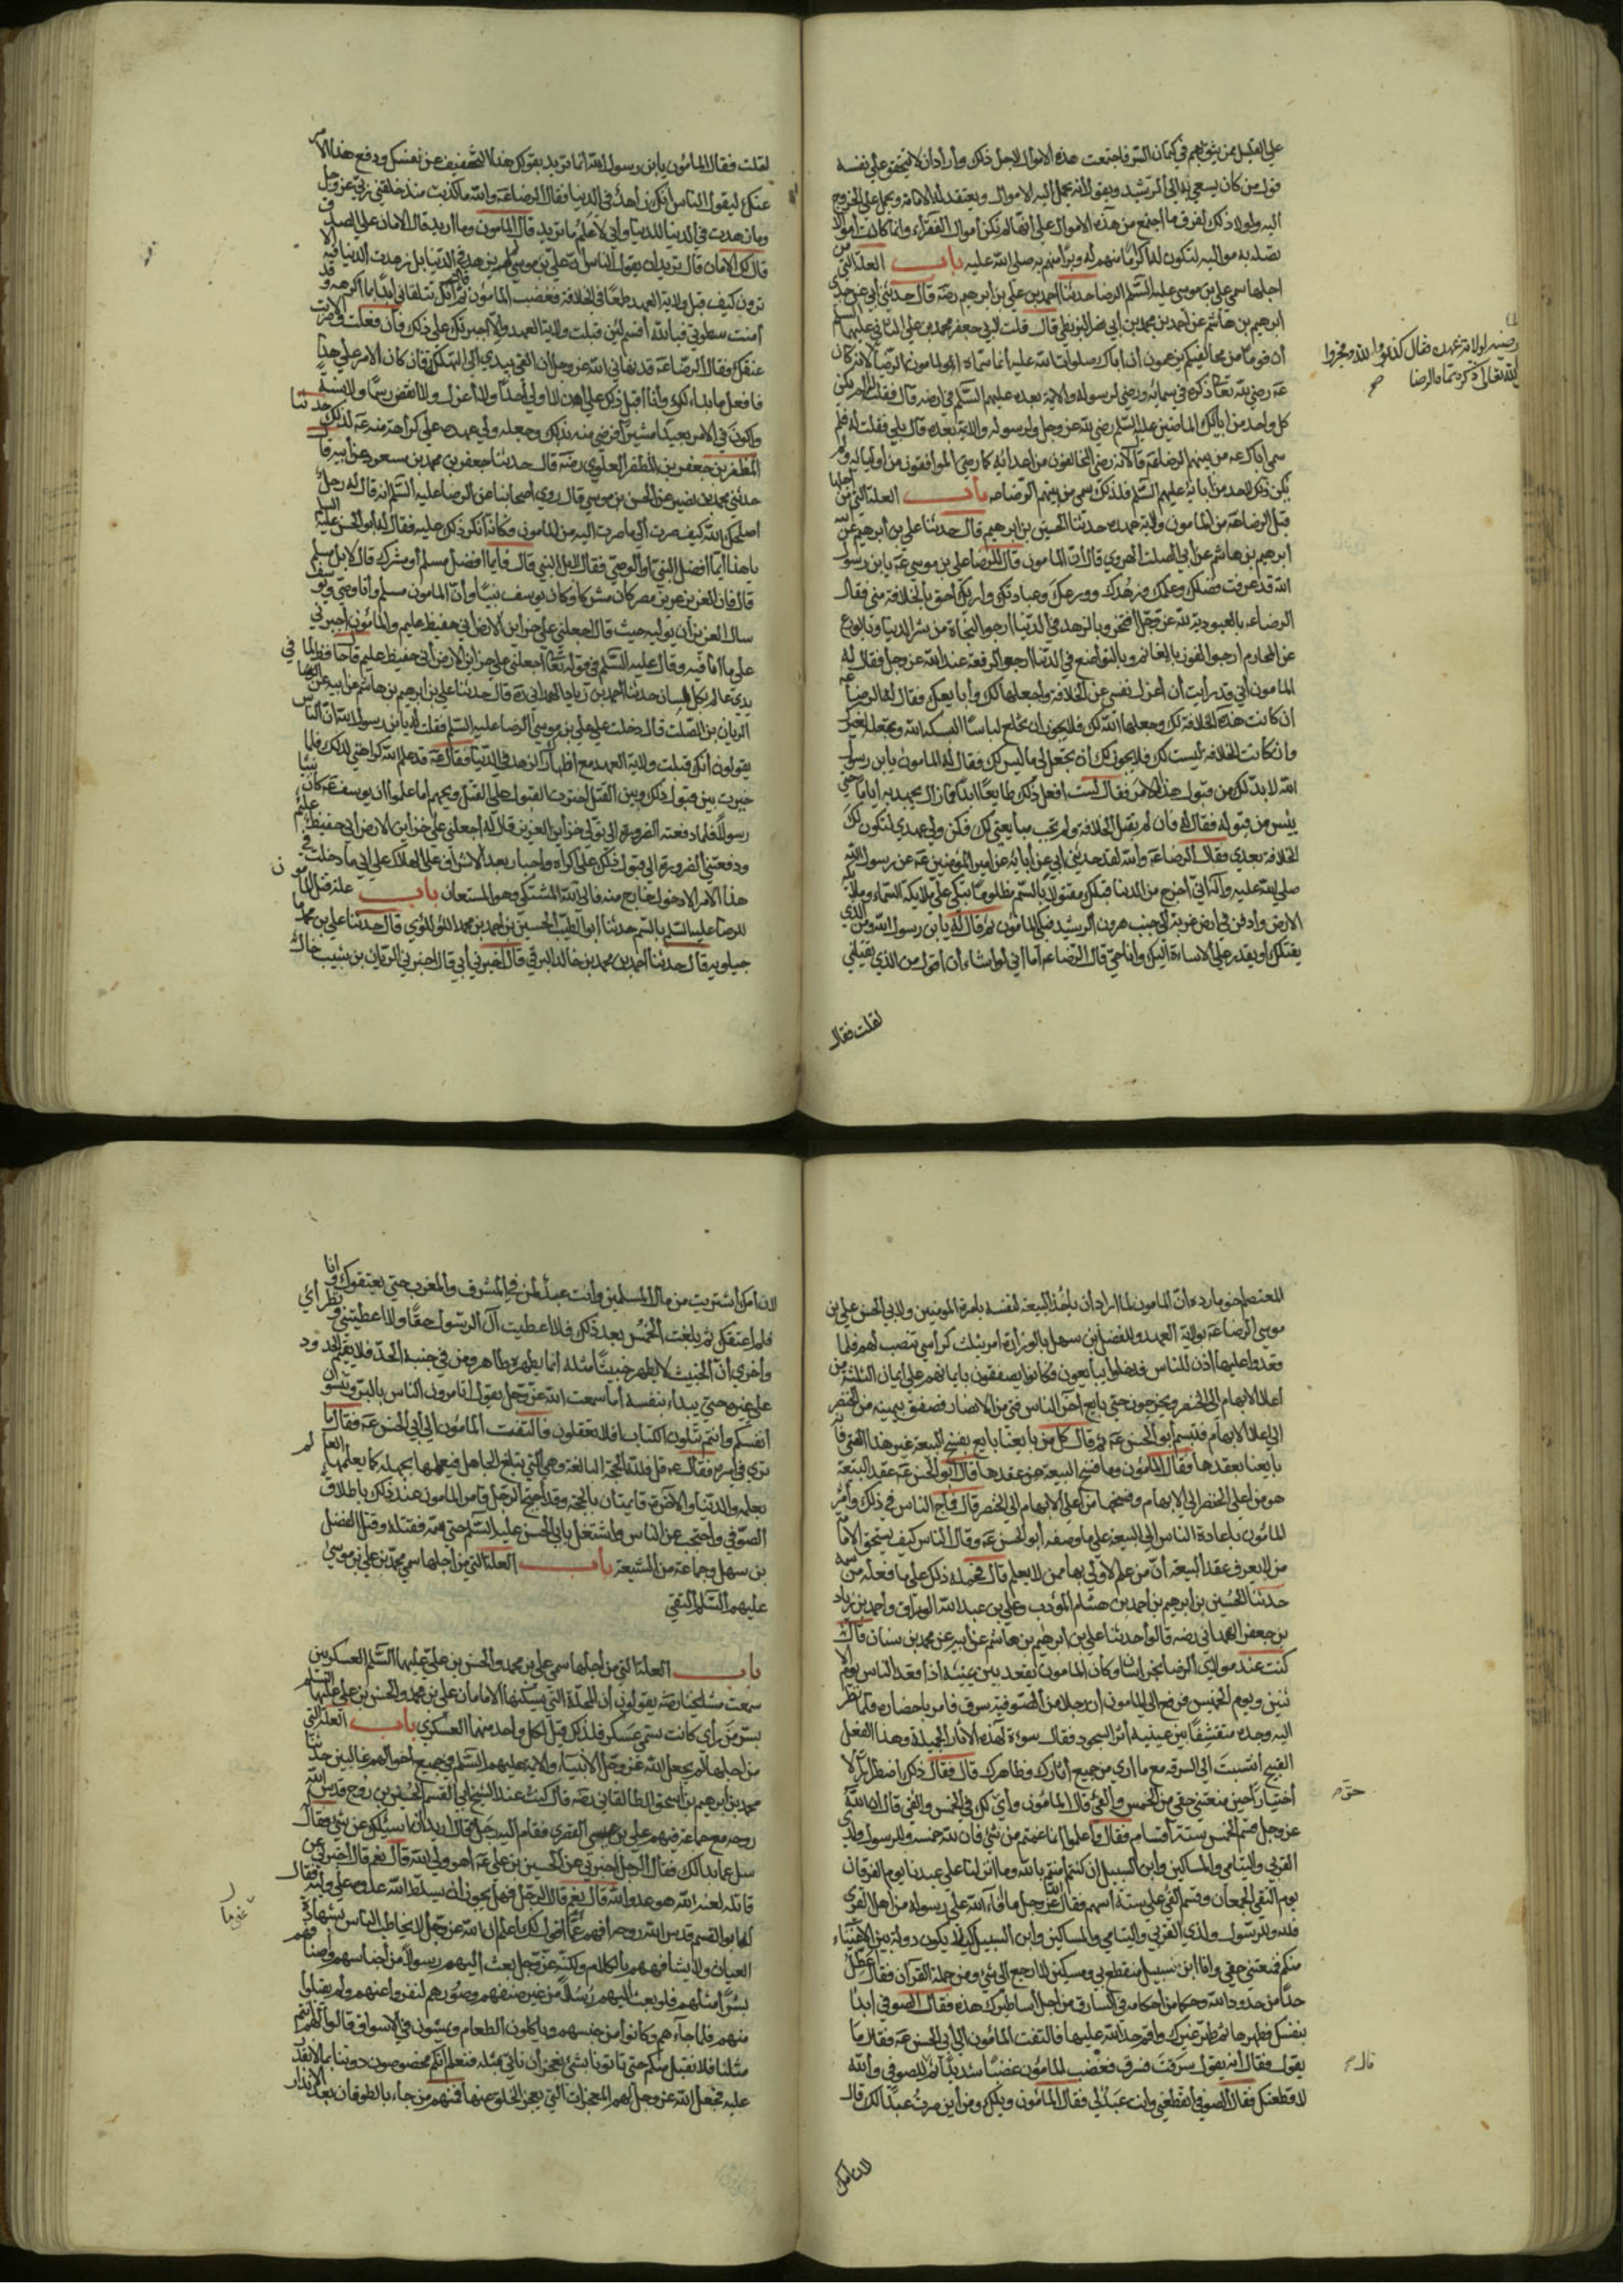 على القبل ممن يثق بهم في كتمان السر فاجتمعت هذه الاموال لاجل ذلك وأراد ان لا يتحقق على نفسه
قول من كان يسعى به الى الرشيد ويقول انه يحمل اليه الاموال ويعتقد له الامامة ويحمل على الخروج
اليه ولولا ذلك لفرق ما اجتمع من هذه الاموال على انها لم تكن أموال الفقراء وانما كانت أموال
يصله به مواليه لتكون له اكراما منهم له وبرا منهم به صلى الله عليه باب العلة التي من
اجلها سمي علي بن موسى عليه السلم الرضا حدثنا احمد بن علي بن ابرهيم رضه قال حدثني أبي عن جدي
ابرهيم بن هاشم عن احمد بن محمد بن أبي نصر البزنطي قال قلت لابي جعفر محمد بن علي الثاني عليهما السلم
أن قوما من مخالفيكم يزعمون أن أباك صلوات الله عليه انما سماه المامون الرضا لانه كان
عه رضي لله تعالى ذكره في سمائه ورضي لرسوله والائمة بعده عليهم السلم في ارضه قال فقلت الم يكن
كل واحد من آبائك الماضين عليه السلم رضي لله عز وجل ولرسوله والائمة بعده قال بلى فقلت له فلم
سمي أباك عه من بينهم الرضا عه قال لانه رضي المخالفون من اعدائه كما رضي الموافقون من أوليائه ولم
يكن ذلك لاحد من آبائه عليهم السلم فلذلك سمي من بينهم الرضا عه باب العلة التي من أجلها
قبل الرضا عه من المامون ولاية عهده حدثنا الحسين بن ابرهيم قال حدثنا علي بن ابرهيم عن أبيه
ابرهيم بن هاشم عن ابي الصلت الهروي قال ان المامون قال للرضا علي بن موسى عه يا بن رسول
الله قد عرفت فضلك وعلمك وزهدك وورعك وعبادتك وأريك احق بالخلافة مني فقال
الرضا عه بالعبودية لله عز وجل افتخر وبالزهد في الدنيا ارجو النجاة من شر الدنيا وبالورع
عن المحارم ارجو الفوز بالمغانم وبالتواضع في الدنيا ارجو الرفعة عند الله عز وجل فقال له
المامون اني قد رأيت أن أعزل نفسي عن الخلافة واجعلها لك وأبايعك فقال له الرضا عه
ان كانت هذه الخلافة لك وجعلها الله لك فلا يجوز ان تخلع لباسا البسكه الله وتجعله لغيرك
وان كانت الخلافة ليست لك فلا يجوز لك أن تجعل لي ما ليس لك فقال له المامون يا بن رسول
الله لا بد لك من قبول هذا الامر فقال لست افعل ذلك طايعا ابدا فما زال يجهد به اياما حتى
يئس من قبوله فقال له فان لم تقبل الخلافة ولم تجب مبايعتي لك فكن ولي عهدي لتكون لك
الخلافة بعدي فقال الرضا عه والله لقد حدثني أبي عن آبائه عن امير المؤمنين عه عن رسول الله
صلى الله عليه وآله اني أخرج من الدنيا قبلك مقتولا بالسم مظلوما تبكي علي ملايكة السماء وملايكة
الارض وادفن في ارض غربة الى جنب هرون الرشيد فبكى المامون ثم قال له يا بن رسول الله ومن الذي
يقتلك أو يقدر على الاساءة اليك وانا حي قال الرضا عه أما اني لو اشاء أن أقول من الذي يقتلني
لقلت فقال
لقلت فقال المامون يا بن رسول الله انما تريد بقولك هذا التخفيف عن نفسك ودفع هذا الامر
عنك ليقول الناس انك زاهد في الدنيا فقال الرضا عه والله ما كذبت منذ خلقني ربي عز وجل
وما زهدت في الدنيا للدنيا وأني لأعلم ما تريد قال المامون وما اريد قال الامان على الصدق
قال لك الامان قال تريد ان يقول الناس ان علي بن موسى لم يزهد في الدنيا بل زهدت الدنيا فيه الا
ترون كيف قبل ولاية العهد طمعا في الخلافة فغضب المامون ثم قال انك تتلقاني أبدا بما اكرهه وقد
امنت سطوتي فبالله أقسم لئن قبلت ولاية العهد والا اجبرتك على ذلك فان فعلت والا ضربت
عنقك فقال الرضا عه قد نهاني الله عز وجل ان القي بيدي الى التهلكة فان كان الامر على هذا
فافعل ما بدا لك وأنا أقبل ذلك على اني لا اولي أحدا ولا أعزل ولا انقض رسما ولا سنة
واكون في الامر بعيدا مشيرا فرضي منه بذلك وجعله ولي عهده على كراهة منه عه لذلك حدثنا
المظفر بن جعفر بن المظفر العلوي رضه قال حدثنا جعفر بن محمد بن مسعود عن أبيه قال
حدثني محمد بن نصير عن الحسن بن موسى قال روى اصحابنا عن الرضا عليه السلم انه قال له رجل
اصلحك الله كيف صرت الى ما صرت اليه من المامون فكانه انكر ذلك عليه فقال له أبو الحسن عليه السلم
يا هذا أيما افضل النبي أو الوصي فقال لا بل النبي قال فايما افضل مسلم أو مشرك قال لا بل مسلم
قال فان العزيز عزيز مصر كان مشركا وكان يوسف نبيا وأن المامون مسلم وأنا وصي ويوسف
سال العزيز أن يوليه حيث قال اجعلني على خزاين الارض اني حفيظ عليم والمامون اجبرني
على ما أنا فيه وقال عليه السلم في قوله تعالى اجعلني على خزاين الارض اني حفيظ عليم قال حافظ لما في
يدي عالم بكل لسان حدثنا احمد بن زياد الهمداني رضه قال حدثنا علي بن ابرهيم بن هاشم عن ابيه عن
الريان بن الصلت قال دخلت على علي بن موسى الرضا عليه السلم فقلت له يا بن رسول الله ان الناس
يقولون أنك قبلت ولاية العهد مع اظهارك الزهد في الدنيا فقال عه قد علم الله كراهتي لذلك فلما
خيرت بين قبول ذلك وبين القتل اخترت القبول على القتل ويحهم اما علموا ان يوسف عه كان نبيا
رسولا فلما دفعته الضرورة الى تولي خزاين العزيز قال له اجعلني على خزاين الارض اني حفيظ عليم
ودفعتني الضرورة الى قبول ذلك على اكراه واجبار بعد الاشراف على الهلاك على اني ما دخلت في
هذا الامر الا دخول خارج منه فالى الله المشتكى وهو المستعان باب علة قتل المامون
للرضا عليه السلم بالسم حدثنا ابو الطيب الحسين بن احمد بن محمد اللؤلؤي قال حدثنا علي بن محمد
جيلويه قال حدثنا احمد بن محمد بن خالد البرقي قال أخبرني أبي قال اخبرني الريان بن شبيب خال
المعتصم اخو مارده أن المامون لما اراد أن يأخذ البيعة لنفسه بامرة المؤمنين ولابي الحسن علي بن
موسى الرضا عه بولاية العهد وللفضل بن سهل بالوزارة أمر بثلث كراسي تنصب لهم فلما
قعدوا عليها أذن للناس فدخلوا يبايعون وكانوا يصفقون بايمانهم على أيمان الثلثة من
أعلا الابهام الى الخنصر ويخرجون حتى بايع آخر الناس فتى من الانصار فصفق بيمينه من الخنصر
الى اعلا الابهام فتبسم أبو الحسن عه ثم قال كل من بايعنا بايع بفسخ البيعة غير هذا الفتى فانه
بايعنا بعقدها فقال المامون وما فسخ البيعة من عقدها قال أبو الحسن عه عقد البيعة
هو من أعلى الخنصر الى الابهام وفسخها من أعلى الابهام الى الخنصر قال فماج الناس في ذلك وأمر
المامون باعادة الناس الى البيعة على ما وصفه أبو الحسن عه وقال الناس كيف يستحق الامامة
من لا يعرف عقد البيعة أن من علم لاولى بها ممن لا يعلم قال فحمله ذلك على ما فعله من سمه
حدثنا الحسين بن ابرهيم بن احمد بن هشام المؤدب وعلي بن عبد الله الوراق واحمد بن زياد
بن جعفر الهمداني رضه قالوا حدثنا علي بن ابرهيم بن هاشم عن أبيه عن محمد بن سنان قال
كنت عند مولاي الرضا بخراسان وكان المامون يقعده بين يمينه اذا قعد الناس يوم الا
ثنين ويوم الخميس فرفع الى المامون أن رجلا من الصوفية سرق فامر باحضاره فلما نظر
اليه وجده متقشفا بين عينيه أثر السجود فقال سوءة لهذه الاثار الجميلة وهذا الفعل
القبيح أتنسب الى السرقة مع ما ارى من جميع آثارك وظاهرك قال فقال ذلك اضطرارا لا
اختيارا حين منعتني حقي من الخمس والفئ قال المامون وأي لك في الخمس والفئ قال ان الله
عز وجل قسم الخمس ستة أقسام فقال واعلموا انما غنمتم من شئ فان لله خمسه وللرسول ولذي
القربى واليتامى والمساكين وابن السبيل ان كنتم امنتم بالله وما انزلنا على عبدنا يوم الفرقان
يوم التقى الجمعان وقسم الفئ على ستة أسهم فقال عز وجل ما أفاء الله على رسوله من اهل القرى
فلله وللرسول ولذي القربى واليتامى والمساكين وابن السبيل كيلا يكون دولة بين الاغنياء
منكم فمنعتني حقي وانا ابن سبيل منقطع بي ومسكين لا ارجع الى شئ ومن حملة القرآن فقال أعطل
حدا من حدود الله وحكما من احكامه في السارق من أجل أساطيرك هذه فقال الصوفي ابدأ
بنفسك فطهرها ثم طهر غيرك واقم حد الله عليها فالتفت المامون الى أبي الحسن عه فقال ما
يقول فقال انه يقول سرقت فسرق فغضب المامون غضبا شديدا ثم للصوفي والله
لاقطعنك فقال الصوفي أتقطعني وانت عبد لي فقال المامون ويلك ومن أين صرت عبدا لك قال
لان امك
لان امك أشتريت من مال المسلمين وأنت عبد لمن في المشرق والمغرب حتى يعتقوك وانا
فلم أعتقك ثم بلغت الخمس بعد ذلك فلا اعطيت آل الرسول حقا ولا اعطيتني ونظراءي
واخرى ان الخبيث لا يطهر خبيثا مثله انما يطهره طاهر ومن في جنبه الحد فلا يقيم الحدود
على غيره حتى يبداء بنفسه أما سمعت الله عز وجل يقول اتامرون الناس بالبر وتنسون
أنفسكم وانتم تتلون الكتاب افلا تعقلون فالتفت المامون الى أبي الحسن عه فقال ما
ترى في امره فقال عه قل فلله الحجة البالغة وهي التي تبلغ الجاهل فيعلمها بجهله كما يعلمها العالم
بعلمه والدنيا والآخرة قايمتان بالحجة وقد أحتج الرجل فامر المامون عند ذلك باطلاق
الصوفي واحتجب عن الناس واشتغل بابي الحسن عليه السلم حتى سمه فقتله وقتل الفضل
بن سهل وجماعة من الشيعة باب العلة التي من اجلها سمي محمد بن علي بن موسى
عليهم السلم التقي
باب العلة التي من أجلها سمي علي بن محمد والحسن بن علي عليهما السلم العسكريين
سمعت مشايخنا رضه يقولون أن المحلة التي يسكنها الامامان علي بن محمد والحسن بن علي عليهما السلم
بسر من رأى كانت تسمى عسكر فلذلك قيل لكل واحد منهما العسكري باب العلة التي
من اجلها لم يجعل الله عز وجل الانبياء والائمة عليهم السلم في جميع احوالهم غالبين حدثنا
محمد بن ابرهيم بن اسحق الطالقاني رضه قال كنت عند الشيخ ابي القسم الحسين بن روح قدس الله
روحه مع جماعة فيهم علي بن عيسى القصري فقام اليه رجل فقال اريد أن أسئلك عن شئ فقال
سل عما بدا لك فقال الرجل اخبرني عن الحسين بن علي عه أهو ولي الله قال نعم قال اخبرني عن
قاتله لعنه الله هو عدو الله قال نعم قال الرجل فهل يجوز أن يسلط الله عدوه على وليه فقال
له ابو القسم قدس الله روحه أفهم عني ما أقول لك اعلم ان الله عز وجل لا يخاطب الناس بشهادة
العيان ولا يشافههم بالكلام ولكنه عز وجل بعث اليهم رسولا من أجناسهم واصنافهم
بشرا مثلهم فلو بعث اليهم رسلا من غير صنفهم وصورهم لنفروا عنهم ولم يقبلوا
منهم فلما جاءهم وكانوا من جنسهم وياكلون الطعام ويمشون في الاسواق قالوا لهم انتم
مثلنا فلا نقبل منكم حتى تاتونا بشئ نعجز أن ناتي بمثله فنعلم أنكم مخصوصون دوننا بما لا نقدر
عليه فجعل الله عز وجل لهم المعجزات التي يعجز الخلق عنها فمنهم من جاء بالطوفان بعد الانذار